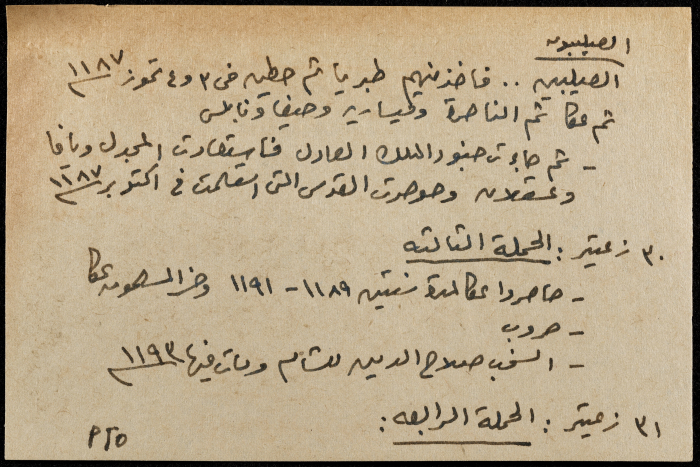 الصليبيون
الصليبيين .. فاخذ منهم طبريا ثم حطين في ٣ و ٤ تموز ١١٨٧
ثم عكا ثم الناصرة وقيسارية وحيفا ونابلس
- ثم جاءت جنود الملك العادل فاستعادت المجدل ويافا
وعسقلان وحوصرت القدس التي استسلمت في اكتوبر ١١٨٧
٣٠ زعيتر : الحملة الثالثه
- حاصروا عكا لمدة سنتين ١١٨٩ - ١١٩١ وخر المسلمون عكا
- حروب
- انسحب صلاح الدين للشام ومات فيها ١١٩٣
٣١ زعيتر : الحملة الرابعه :
PTO